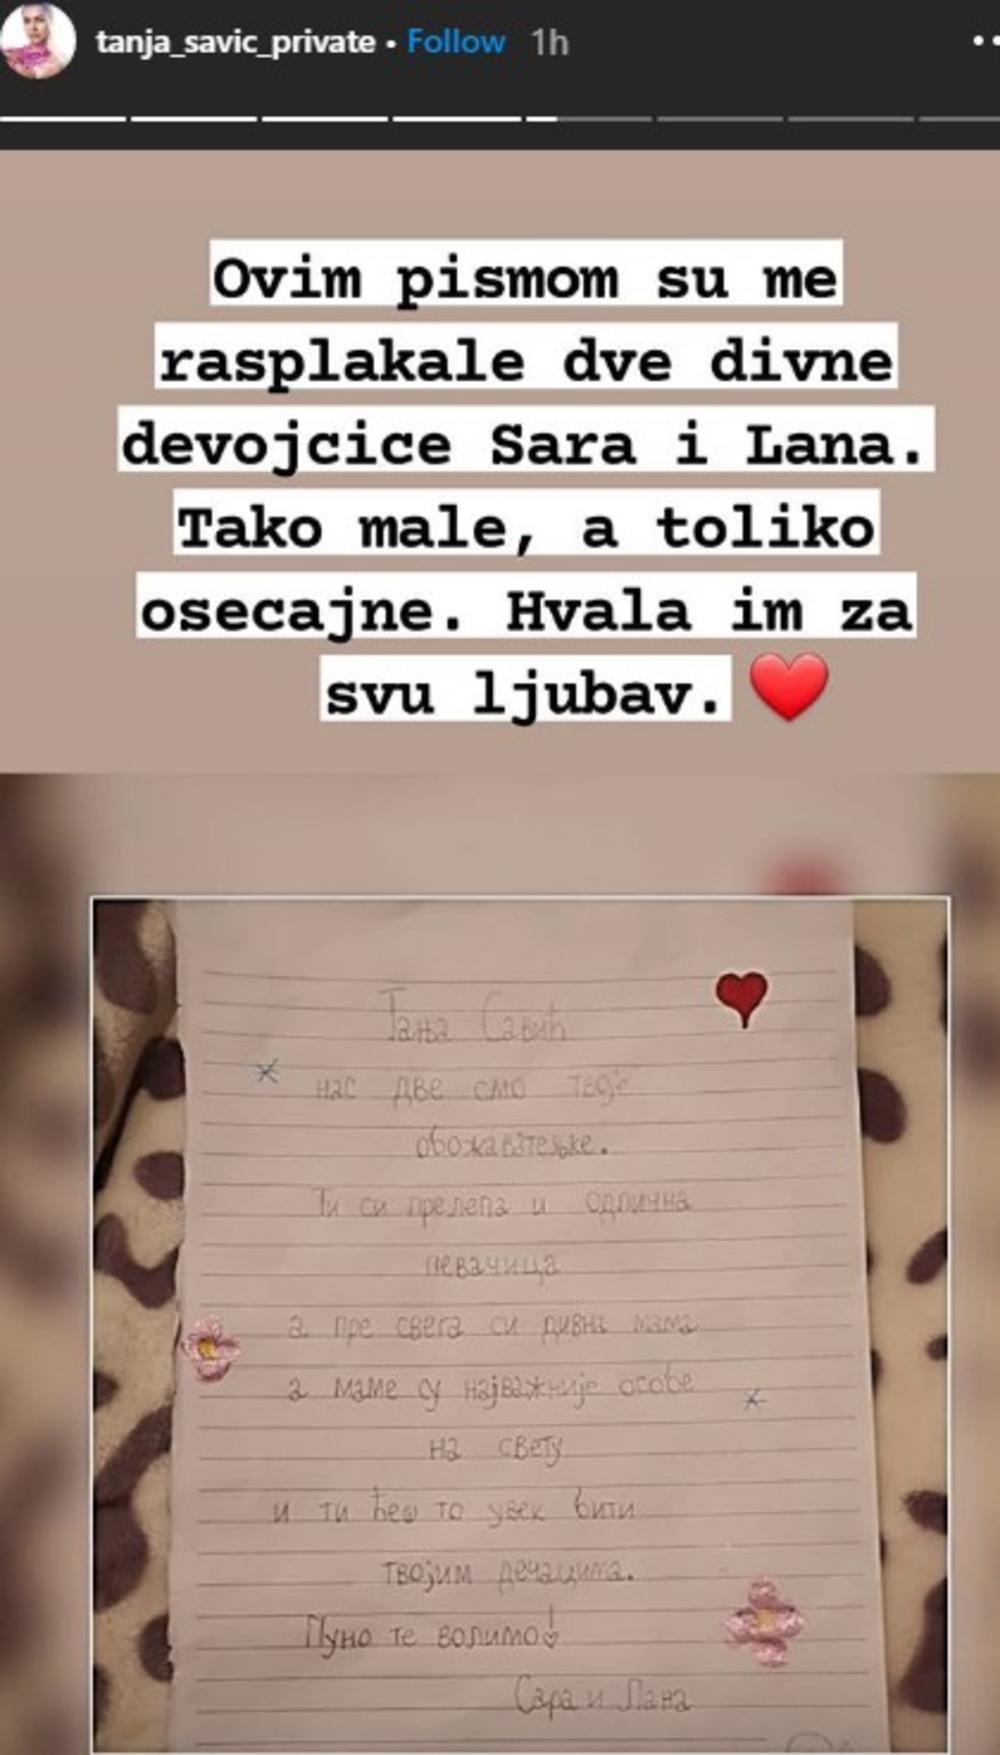 tanja_savic_private • Follow 1h
Ovim pismom su me
rasplakale dve divne
devojcice Sara i Lana.
Tako male, a toliko
osecajne. Hvala im za
svu ljubav. ❤️
Тања Савић
нас две смо твоје
обожаватељке.
Ти си прелепа и одлична
певачица
а пре свега си дивна мама
а маме су најважније особе
на свету
и ти ћеш то увек бити
твојим дечацима.
Пуно те волимо!
Сара и Лана